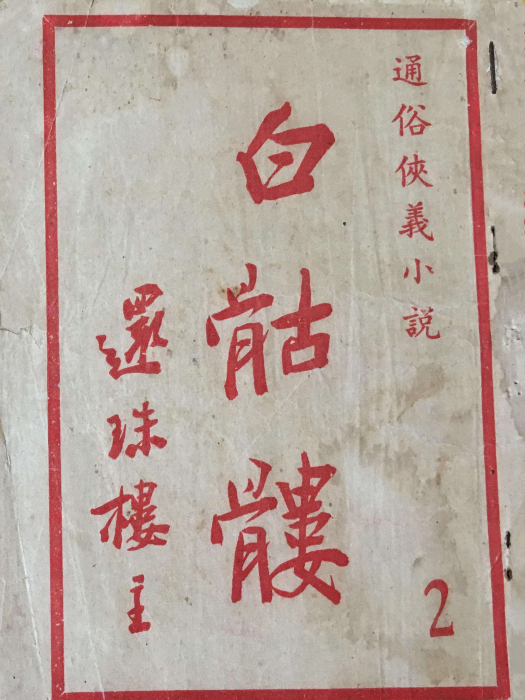 通俗俠義小説
白骷髏
還珠樓主
2